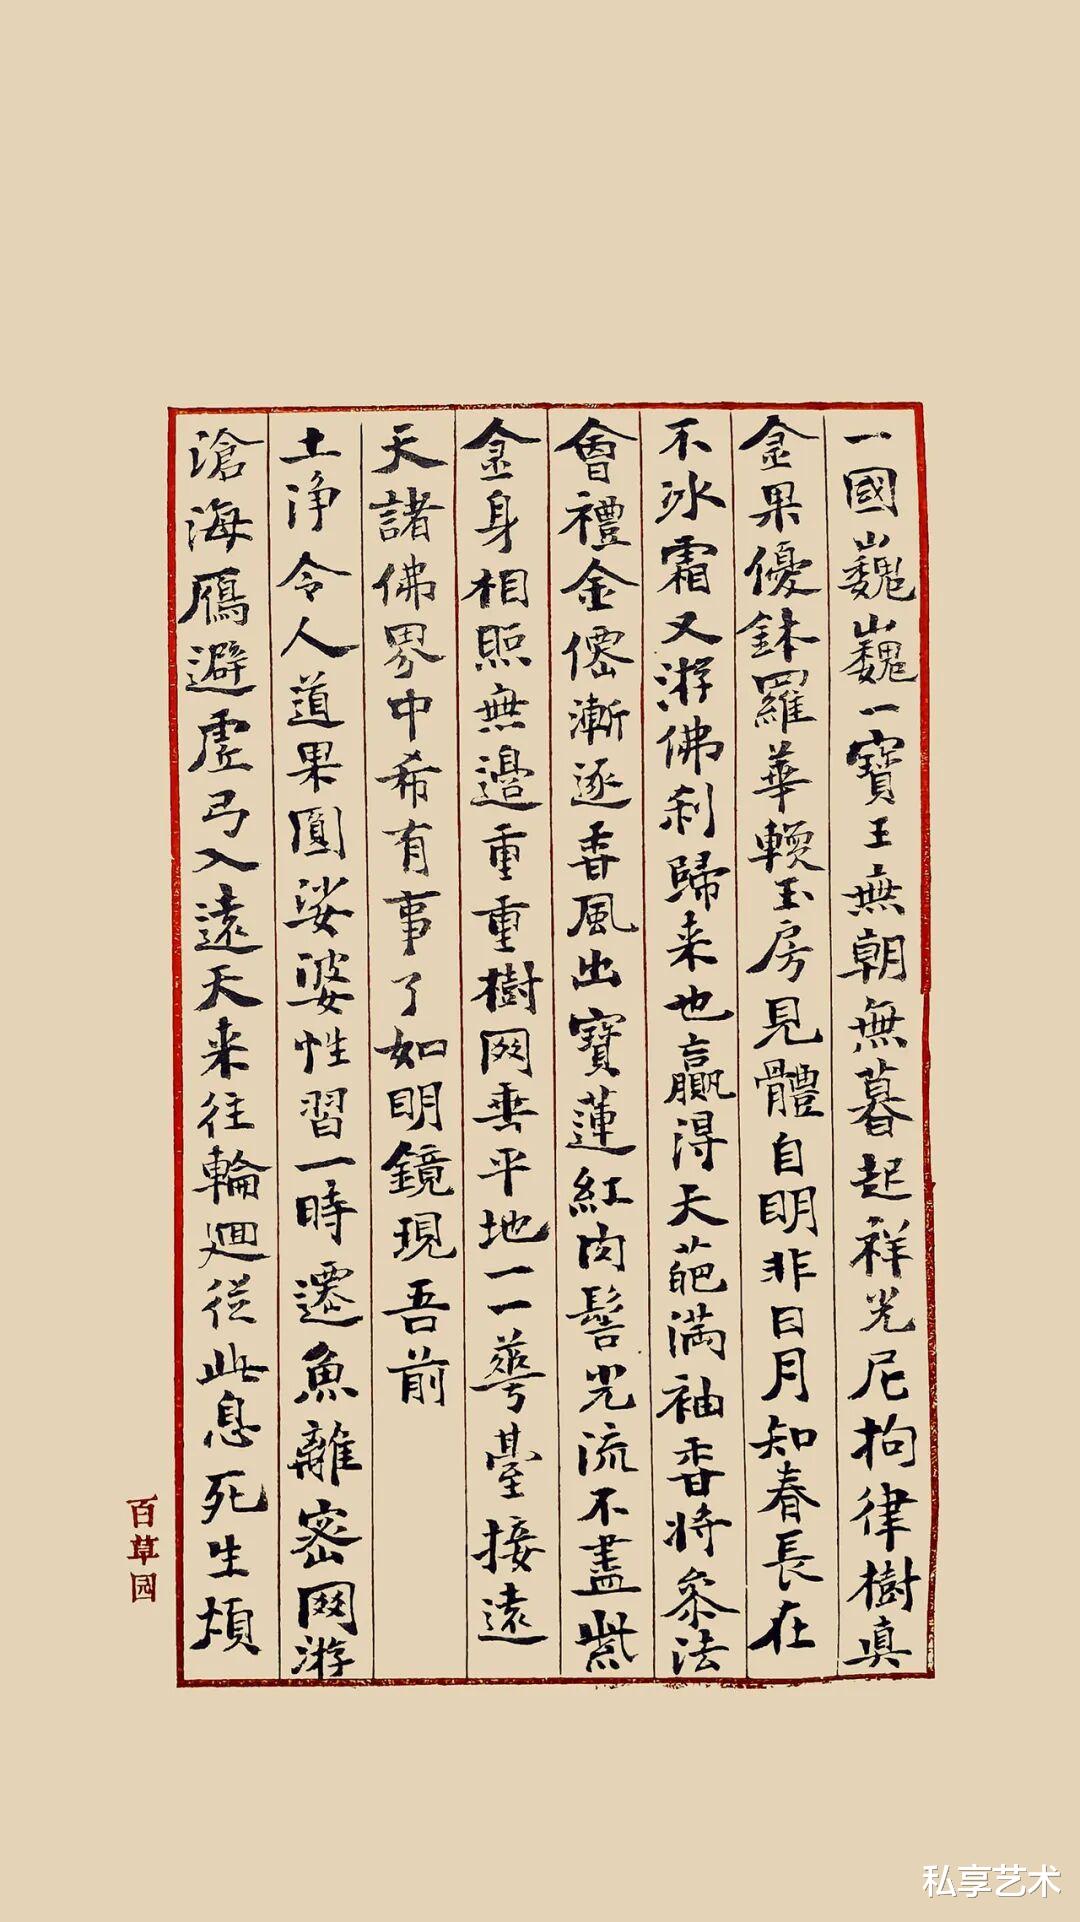 一國巍巍一寶王無朝無暮起祥光尼拘律樹真
金果優鉢羅華輭玉房見體自明非日月知春長在
不冰霜又游佛刹歸来也贏得天葩满袖香将叅法
會禮金僊漸逐香風出寶蓮紅肉髻光流不盡紫
金身相照無邊重重樹网垂平地一一華臺接遠
天諸佛界中希有事了如明鏡現吾前
土淨令人道果圓娑婆性習一時遷魚離密网游
滄海鴈避虛弓入遠天来往輪迴從此息死生煩
百草园
私享艺术